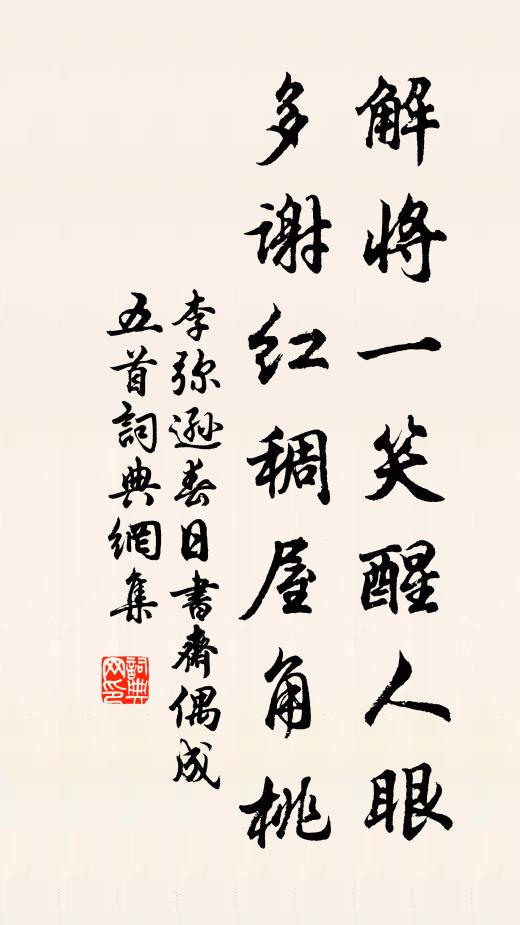 解将一笑醒人眼
多谢红稠屋角桃
李弥逊春日书斋偶成
五首词典網集
詞典网印